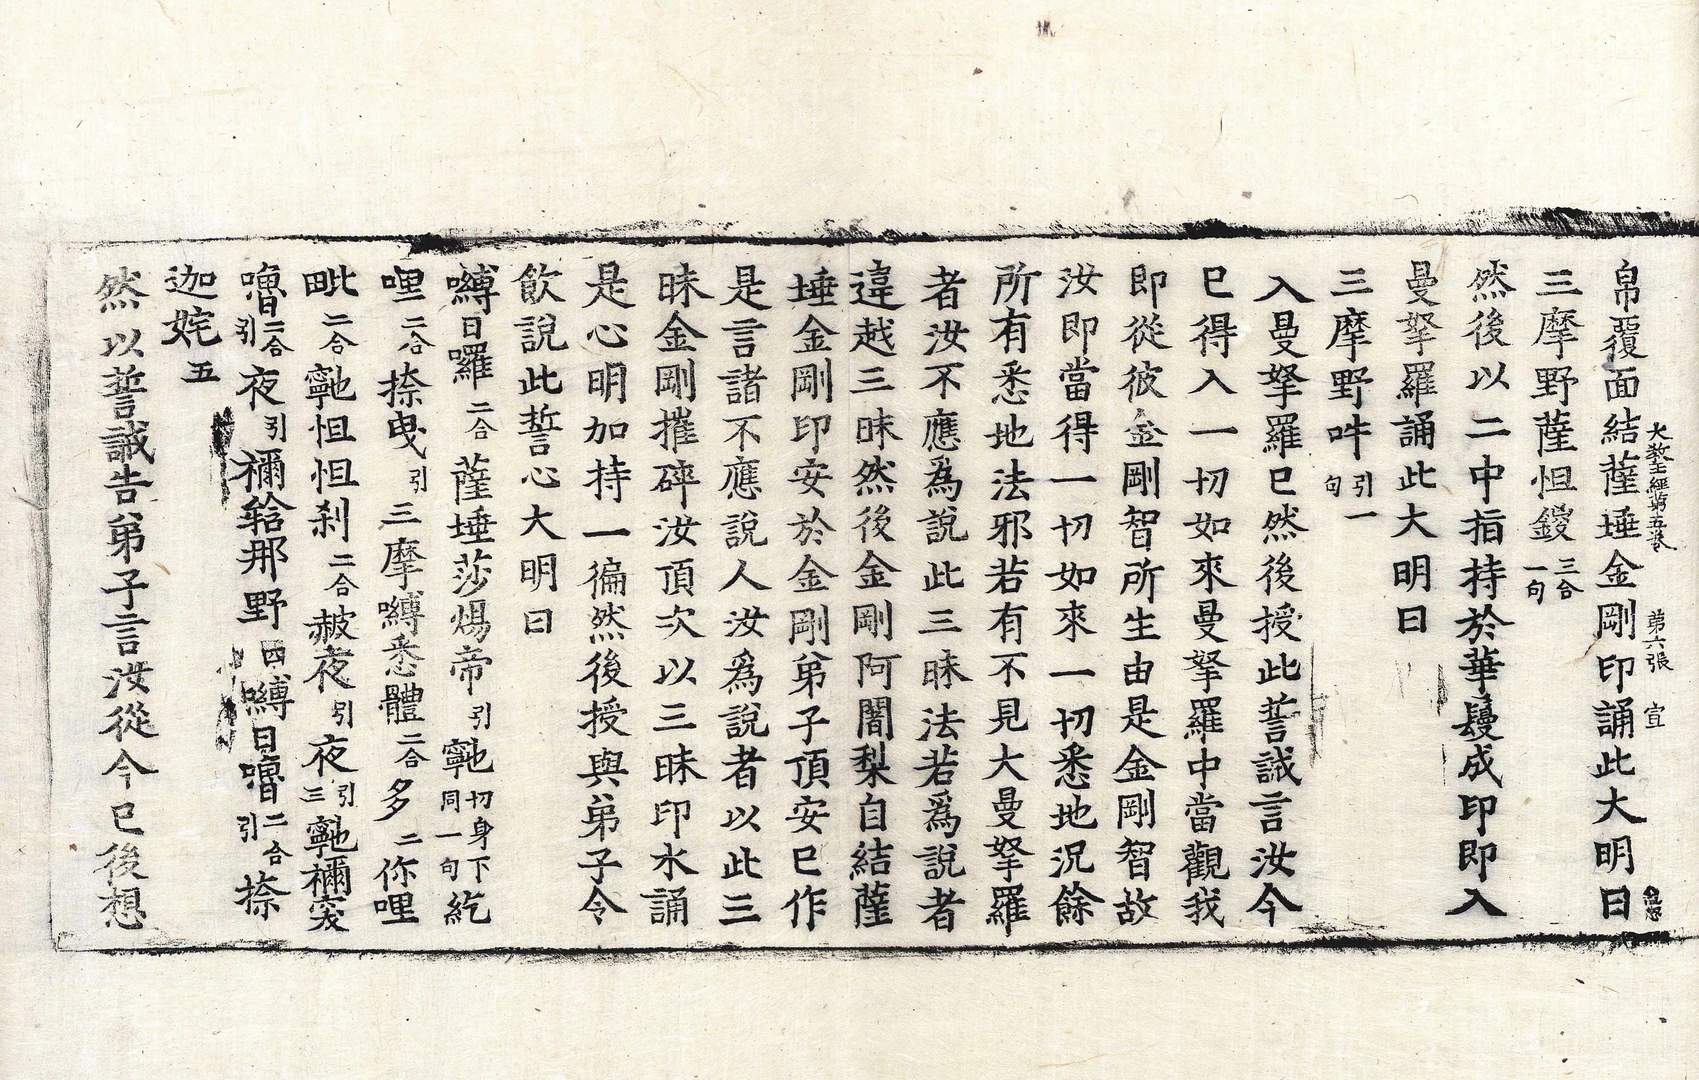 大教王經第五卷　第六張　宣
帛覆面結薩埵金剛印誦此大明曰
三摩野薩怛鑁三合一句
然後以二中指持於華鬘成印即入
曼拏羅誦此大明曰
三摩野吽引一句
入曼拏羅已然後授此誓誡言汝今
已得入一切如來曼拏羅中當觀我
即從彼金剛智所生由是金剛智故
汝即當得一切如來一切悉地況餘
所有悉地法邪若有不見大曼拏羅
者汝不應爲說此三昧法若爲說者
違越三昧然後金剛阿闍梨自結薩
埵金剛印安於金剛弟子頂安已作
是言諸不應說人汝爲說者以此三
昧金剛摧碎汝頂次以三昧印水誦
是心明加持一徧然後授與弟子令
飲說此誓心大明曰
嚩日囉二合薩埵莎煬帝引𩕳切身下同一句紇
哩二合捺曳引三摩嚩悉體二合多二你哩
毗二合𩕳怛怛刹二合赧夜引夜引三𩕳禰突
嚕二合引夜引禰䩭那野四嚩日嚕二合引捺
迦姹五
然以誓誡告弟子言汝從今已後想